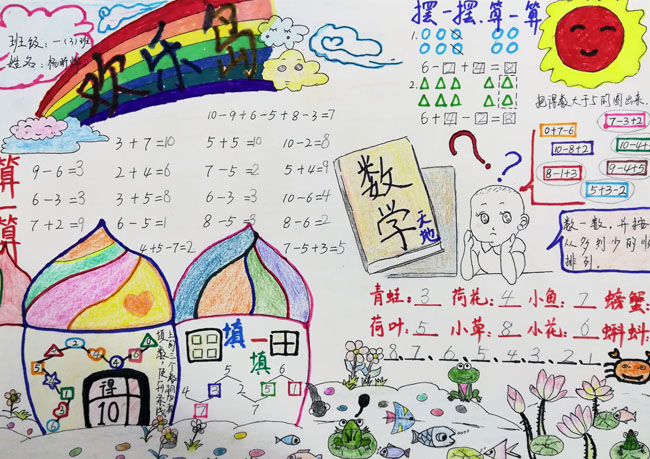 班级:一(3)班
姓名:杨昕
欢乐岛
摆一摆.算一算
1.
6-□+4=8
2.
6+4-2=8
把得数大于5的圈出来.
0+7-6
7-3+2
10-8+2
10-4+
8-1+3
9-4+5
5+3-2
10-9+6-5+8-3=7
3+7=10
5+5=10
10-2=8
9-6=3
2+4=6
7-5=2
5+4=9
6-3=3
3+5=8
6-3=3
10-6=4
7+2=9
6-5=1
8-5=3
8-6=2
4+5-7=2
7-5+3=5
算一算
数学
天地
?
?
数一数,并按
从多到少的
排列.
青蛙:3 荷花:4 小鱼:7 螃蟹:
荷叶:5 小草:8 小花:6 蝌蚪:
8.7.6.5.4.3.2.1
填一填
得
10